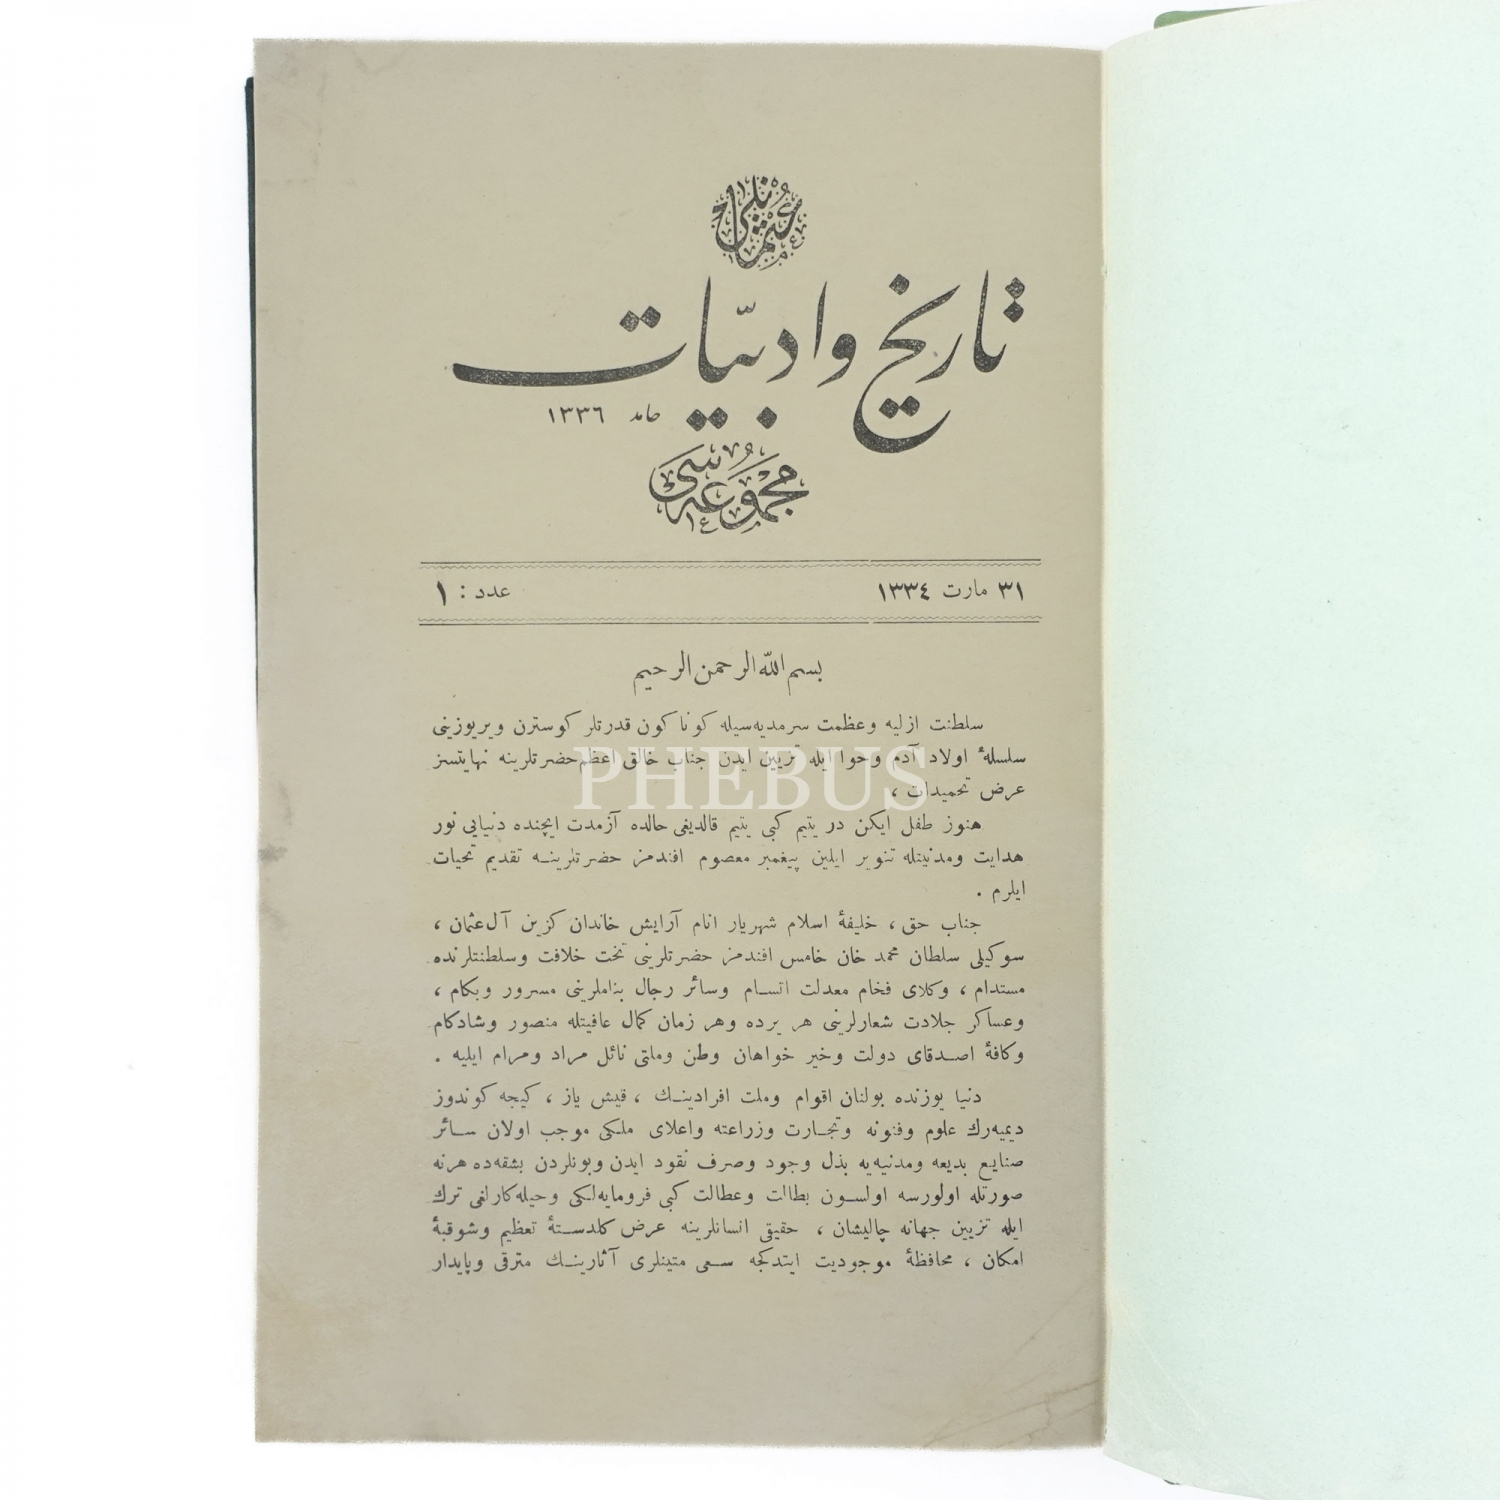 عثمانلی
تاریخ وادبیّات
حامد ١٣٣٦
مجموعه‌سی
٣١ مارت ١٣٣٤
عدد : ١
بسم الله الرحمن الرحیم
سلطنت ازلیه وعظمت سرمدیه‌سیله کوناکون قدرتلر کوسترن ویریوزینی
سلسلهٔ اولاد آدم وحوا ایله تزیین ایدن جناب خالق اعظم حضرتلرینه نهایتسز
عرض تحمیدات ،
هنوز طفل ایکن در یتیم کبی یتیم قالدیغی حالده آزمدت ایچنده دنیایی نور
هدایت ومدنیتله تنویر ایلین پیغمبر معصوم افندمز حضرتلرینـه تقدیم تحیات
ایلرم .
جناب حق ، خلیفهٔ اسلام شهریار انام آرایش خاندان کزین آل عثمان ،
سوکیلی سلطان محمد خان خامس افندمز حضرتلرینی تخت خلافت وسلطنتلرنده
مستدام ، وکلای فخام معدلت اتسـام وسائر رجال بناملرینی مسرور وبکام ،
وعساکر جلادت شعارلرینی هر یرده وهر زمان کمال عافیتله منصور وشادکام
وکافهٔ اصـدقای دولت وخیر خواهان وطن وملتی نائل مراد ومرام ایلیه .
دنیا یوزنده بولنان اقوام وملت افرادینـك ، قیش یاز ، کیجه کوندوز
دیمیه‌رك علوم وفنونه وتجـارت وزراعته واعلای ملکی موجب اولان سـائر
صنایع بدیعه ومدنیه‌یه بذل وجود وصرف نقود ایدن وبونلردن بشقه‌ده هرنه
صورتله اولورسه اولسـون بطالت وعطالت کبی فرومایه‌لکی وحیله‌کارلغی ترك
ایله تزیین جهانه چالیشان ، حقیقی انسانلرینه عرض کلدسـتهٔ تعظیم وشوقبهٔ
امکان ، محافظهٔ موجودیت ایتدکجه سـعی متینلری آثارینـك مترقی وپایدار
PHEBUS